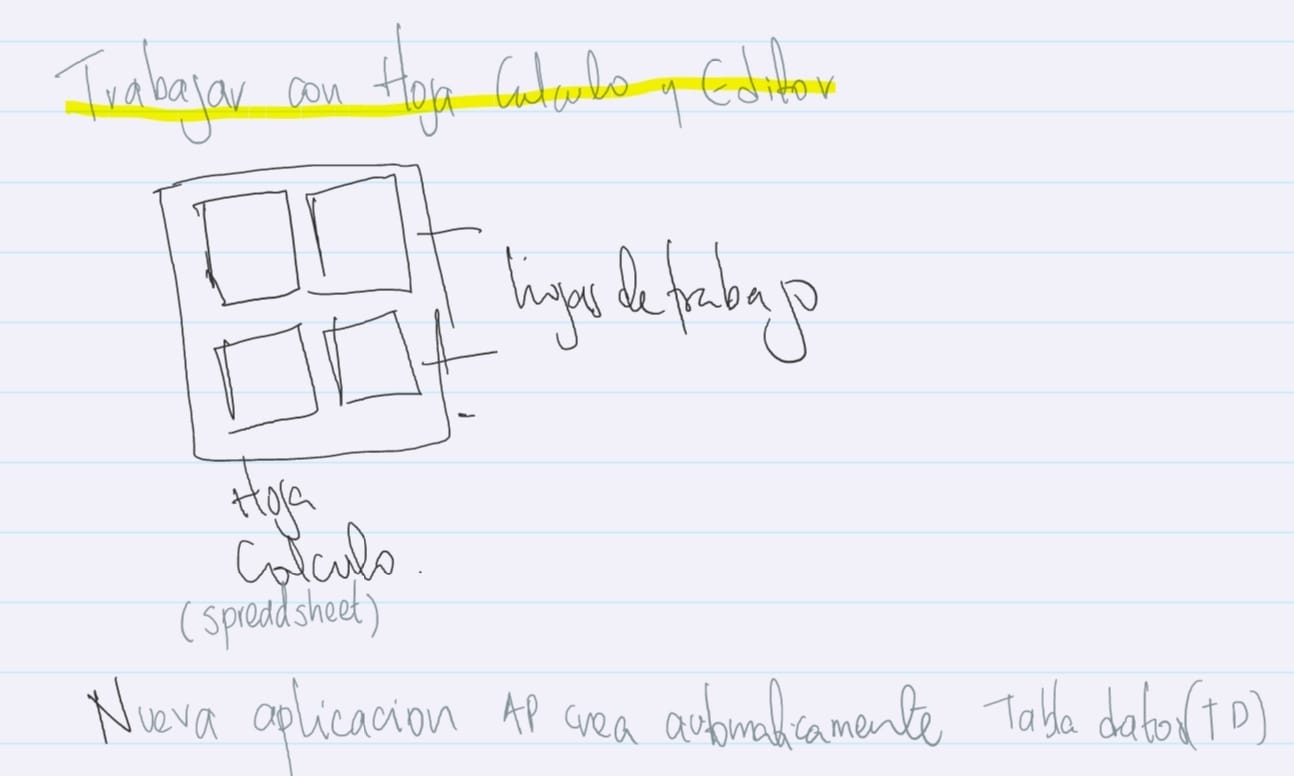 Trabajar con Hoja Calculo y Editor
hojas de trabajo
Hoja
Calculo.
(spreadsheet)
Nueva aplicacion AP crea automaticamente Tabla datos (TD)